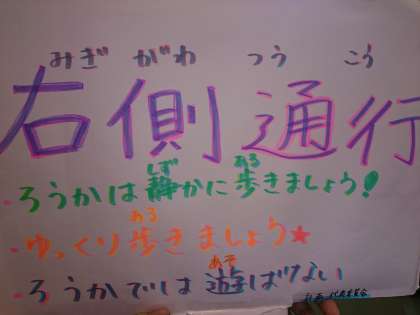 みぎ がわ つう こう
右側通行
しず ある
・ろうかは静かに歩きましょう!
ある
・ゆっくり歩きましょう★
あそ
・ろうかでは遊ばない